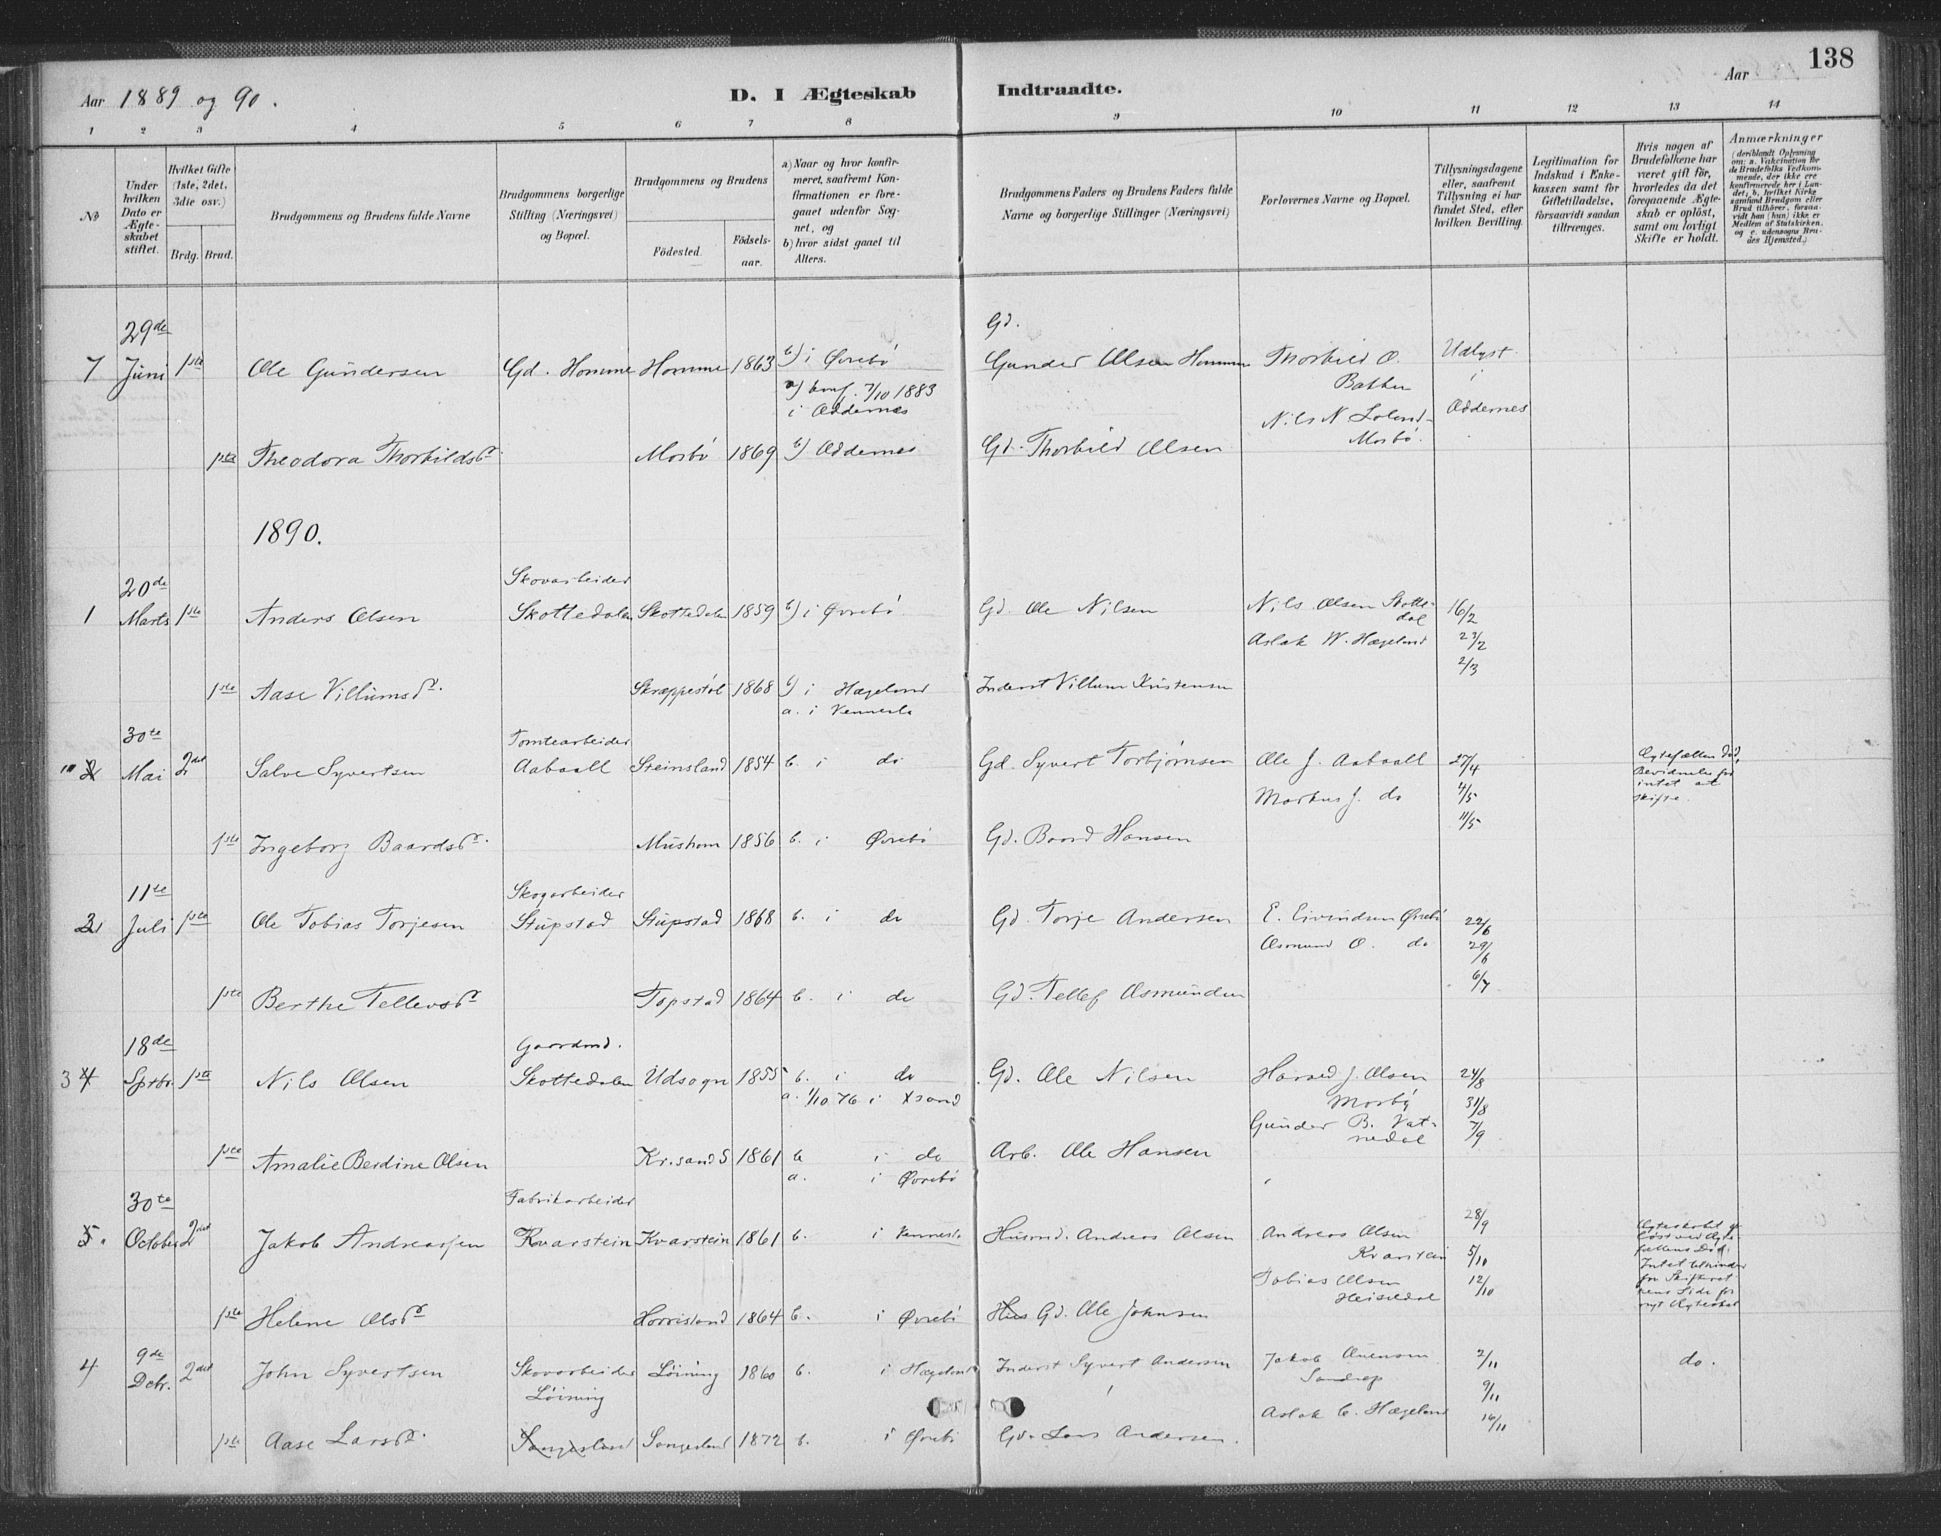 138
Aar 1889 og 90.
D. I Ægteskab Indtraadte.
Aar
1 2 3 4 5 6 7 8 9 10 11 12 13 14
No
Under hvilken Dato er Ægteskabet stiftet.
Hvilket Gifte (1ste, 2det, 3die osv.)
Brdg. Brud.
Brudgommens og Brudens fulde Navne
Brudgommens borgerlige Stilling (Næringsvei) og Bopæl.
Brudgommens og Brudens
Fødested.
Fødsels-aar.
a) Naar og hvor konfirmeret, saafremt Konfirmationen er foregaaet udenfor Sognet, og
b) hvor sidst gaaet til Alters.
Brudgommens Faders og Brudens Faders fulde Navne og borgerlige Stillinger (Næringsvei)
Forlovernes Navne og Bopæl.
Tillysningsdagene eller, saafremt Tillysning ei har fundet Sted, efter hvilken Bevilling.
Legitimation for Indskud i Enkekassen samt for Giftetilladelse, forsaavidt saadan tiltrænges.
Hvis nogen af Brudefolkene har været gift før, hvorledes da det foregaaende Ægteskab er opløst, samt om lovligt Skifte er holdt.
Anmærkninger
(deriblandt Oplysning om: a. Vakcination for de Brudefolks Vedkommende, der ikke ere konfirmerede her i Landet, b. hvilket Kirkesamfund Brudgom eller Brud tilhører, forsaavidt han (hun) ikke er Medlem af Statskirken, og c. udensogns Brudes Hjemsted.)
29de Gd.
7 Juni 1ste Ole Gundersen Gd. Homme Homme 1863 b) i Øvrebø Gunder Olsen Homme Thorkild O. Udlyst
a) konf. 7/10 1883 Bakken i
i Oddernes Nils N Loland Oddernes
1ste Theodora Thorkildsdr Mosbø 1869 b) Oddernes Gd. Thorkild Olsen Mosbø.
1890.
20de Skovarbeider
1 Marts 1ste Anders Olsen Skottedalen Skottedalen 1859 b) i Øvrebø Gd. Ole Nilsen Nils Olsen Skottedal 16/2
Aslak W. Hægeland 23/2
2/3
1ste Aase Villumsdr. Skræppestøl 1868 b) i Hægeland Inderst Villum Kristensen
a. i Vennesla
30te Tomtearbeider
2 Mai 2det Salve Syvertsen Aabaall Steinsland 1854 b. i do Gd. Syvert Torbjørnsen Ole J. Aabaall 27/4 Ægtefællen død,
Markus J. do 4/5 intet at
11/5 skifte.
1ste Ingeborg Baardsdr. Mushom 1856 b. i Øvrebø Gd. Baard Hansen
11te Skogarbeider
2 Juli 1ste Ole Tobias Torjesen Stupstad Stupstad 1868 b. i do Gd. Torje Andersen E. Eivindsen Øvrebø 22/6
Asmund O. do 29/6
6/7
1ste Berthe Tellevsdr Topstad 1864 b. i do Gd. Tellef Asmundsen
18de Gaardmd.
3 4 Septbr. 1ste Nils Olsen Skottedalen Udsogn 1855 b. i do Gd. Ole Nilsen Harald J. Olsen 24/8
a. 1/10 76 i Xsand Mosby 31/8
Gunder B. Vatnedal 7/9
1ste Amalie Berdine Olsen Kr.sand S 1861 b i do Arb. Ole Hansen
a. i Øvrebø
30te Fabrikarbeider
5. October 2det Jakob Andreassen Kvarstein Kvarstein 1861 b. i Vennesla Husmd. Andreas Olsen Andreas Olsen 28/9
Kvarstein 5/10
Tobias Olsen 12/10
Heiseldal
1ste Helene Olsdr Horrisland 1864 b. i Øvrebø Hus Gd. Ole Johnsen
9de
4 Dcbr. 2det John Syvertsen Skovarbeider Løining 1860 b. i Hægeland Inderst Syvert Andersen Jakob 2/11 do.
Løining 9/11
Aslak C. Hægeland 16/11
1ste Aase Larsdr. Sangesland Sangesland 1872 b. i Øvrebø Gd. Lars Andersen.